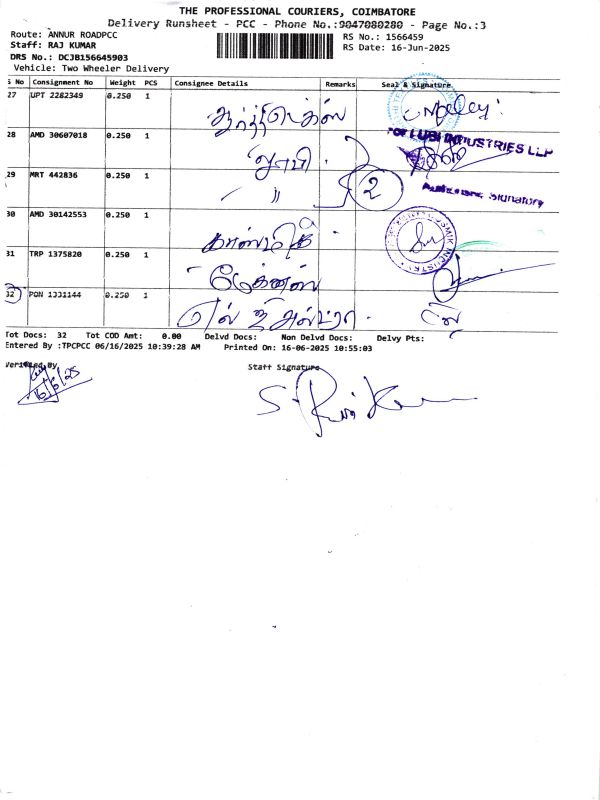 THE PROFESSIONAL COURIERS, COIMBATORE
Delivery Runsheet - PCC - Phone No.:9047080280 - Page No.:3
Route: ANNUR ROADPCC
RS No.: 1566459
Staff: RAJ KUMAR
RS Date: 16-Jun-2025
DRS No.: DCJB156645903
Vehicle: Two Wheeler Delivery
S No Consignment No Weight PCS Consignee Details Remarks Seal & Signature
27 UPT 2282349 0.250 1
28 AMD 30607018 0.250 1 லுபி
For LUBI INDUSTRIES LLP
29 MRT 442836 0.250 1 〃 2
Authorised Signatory
30 AMD 30142553 0.250 1 காஸ்மிக்
31 TRP 1375820 0.250 1 மேக்னஸ்
32 PON 1331144 0.250 1
Tot Docs: 32 Tot COD Amt: 0.00 Delvd Docs: Non Delvd Docs: Delvy Pts:
Entered By :TPCPCC 06/16/2025 10:39:28 AM Printed On: 16-06-2025 10:55:03
Verified By
Staff Signature
16/6/25